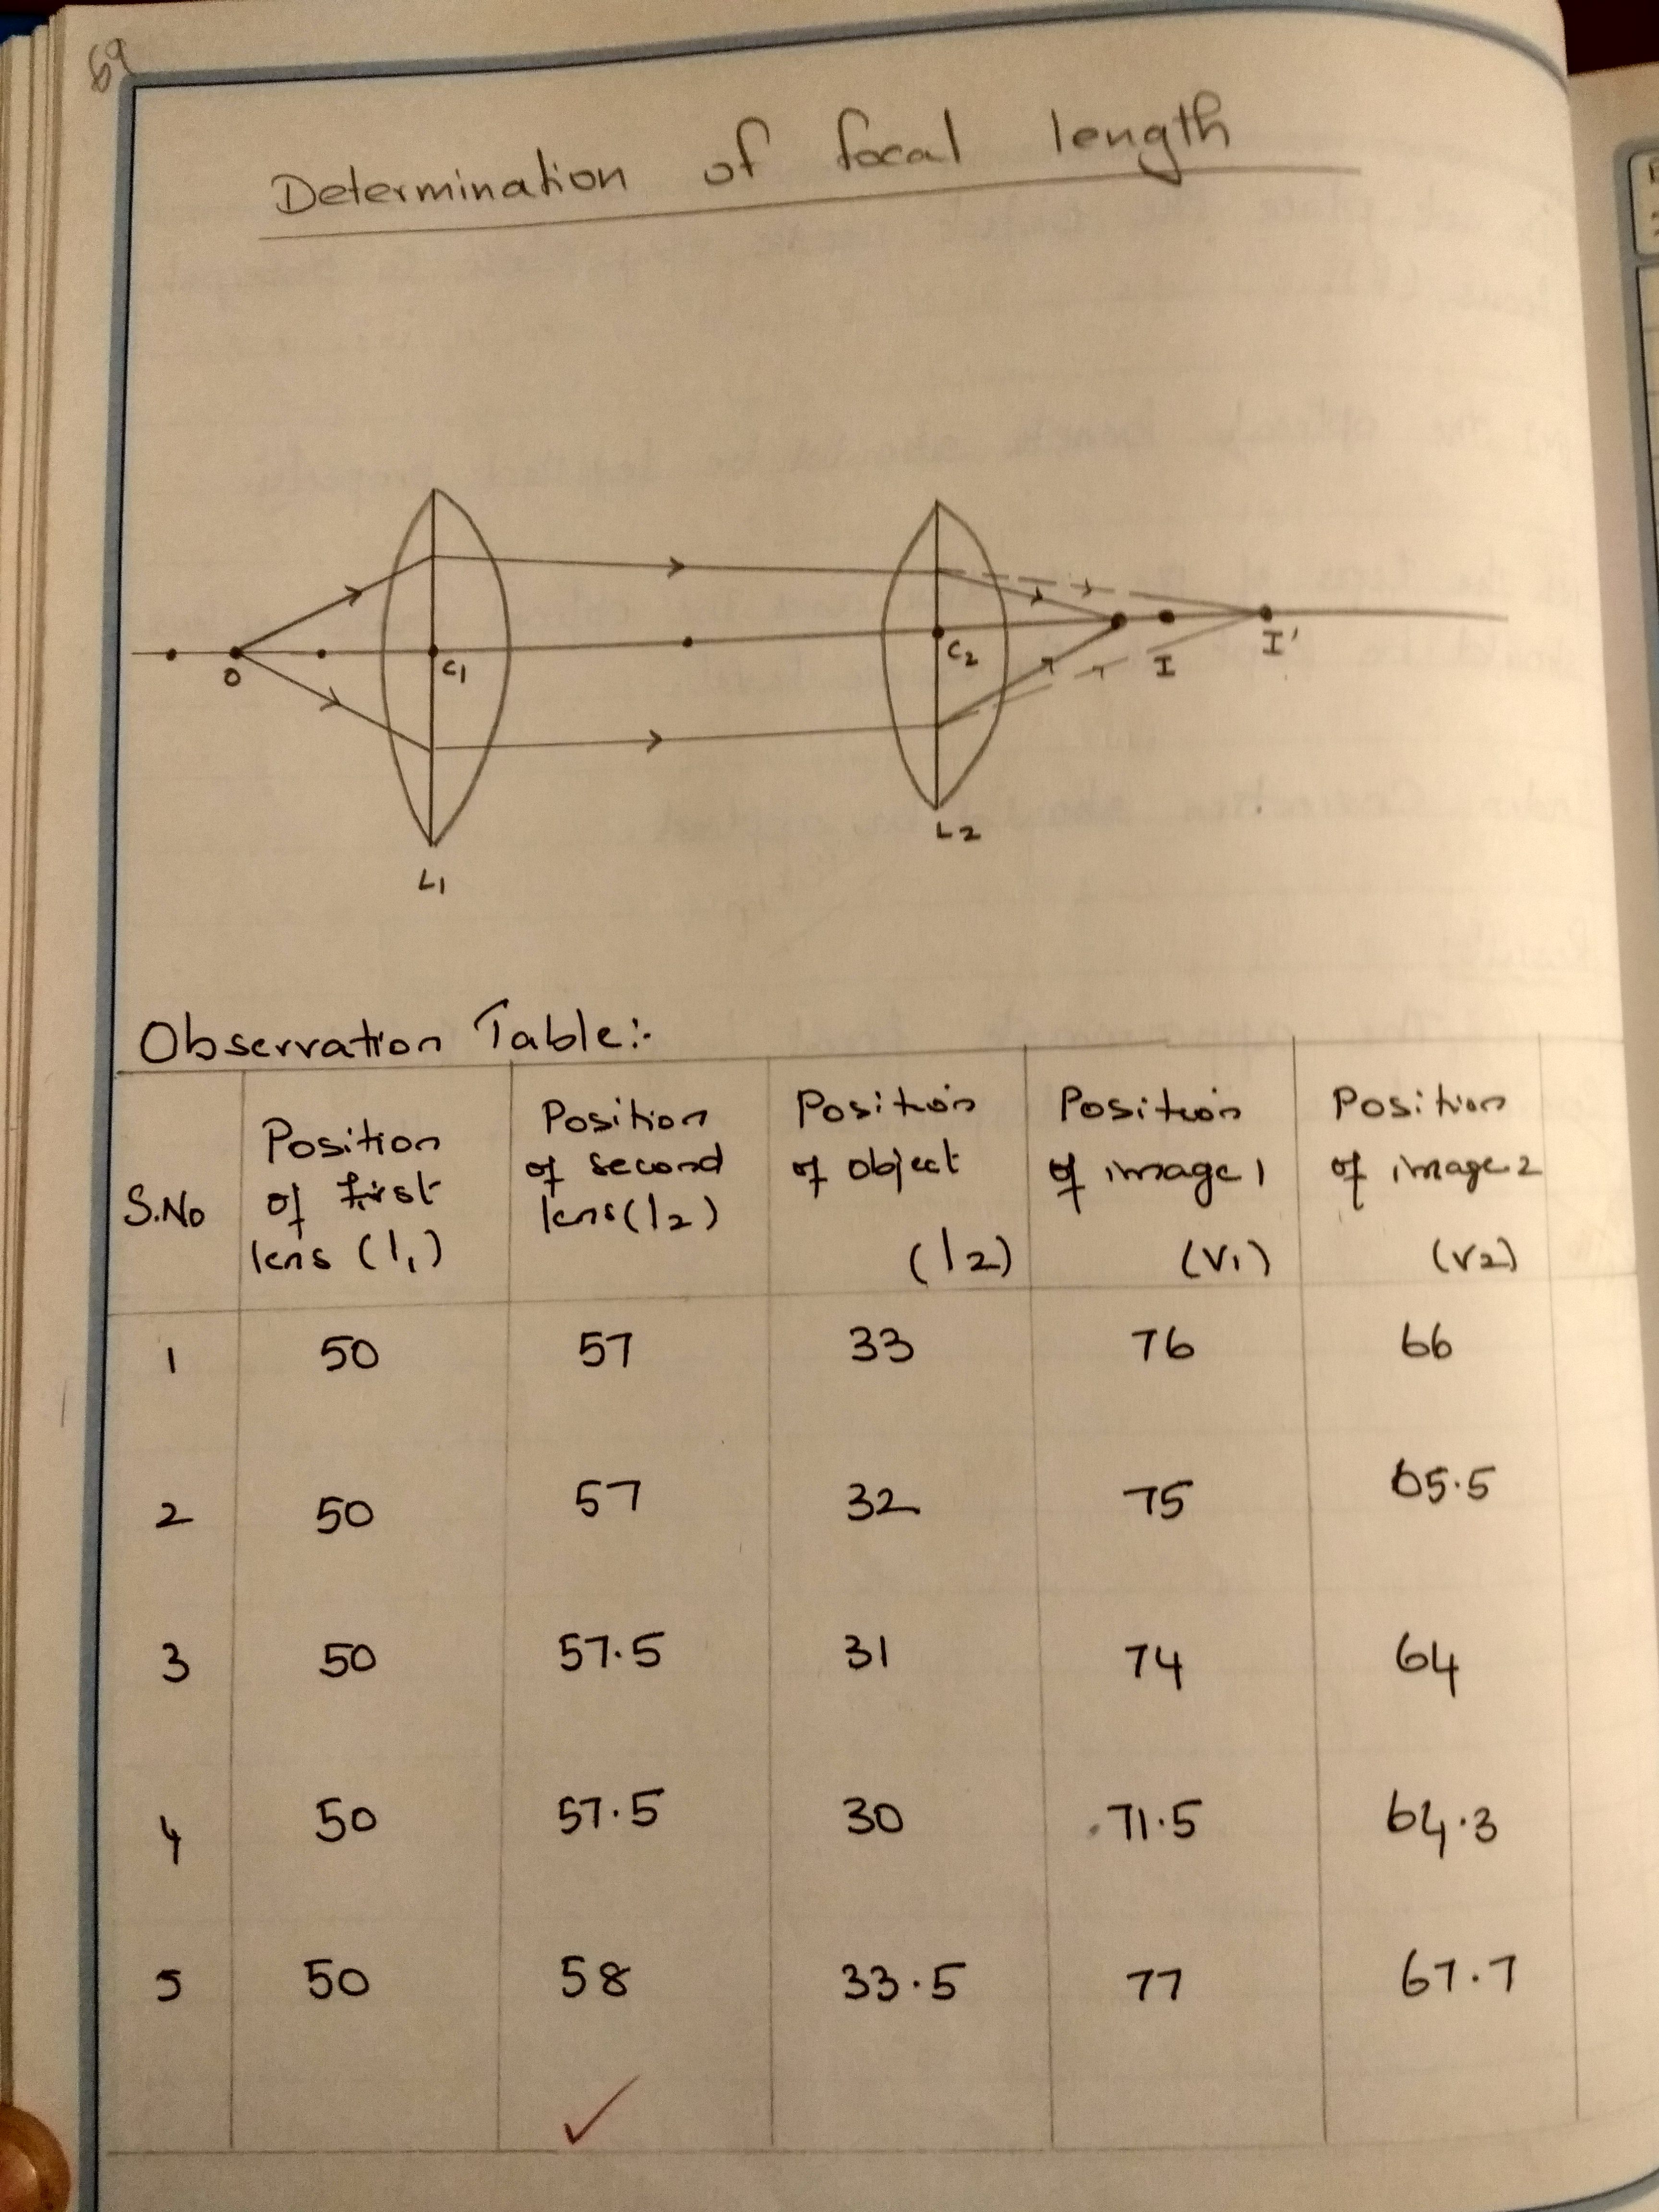 69
Determination of focal length
O
C1
C2
I
I'
L1
L2
Observation Table:-
S.No
Position of first lens (l1)
Position of second lens (l2)
Position of object (l2)
Position of image 1 (v1)
Position of image 2 (v2)
1 50 57 33 76 66
2 50 57 32 75 65.5
3 50 57.5 31 74 64
4 50 57.5 30 71.5 64.3
5 50 58 33.5 77 67.7